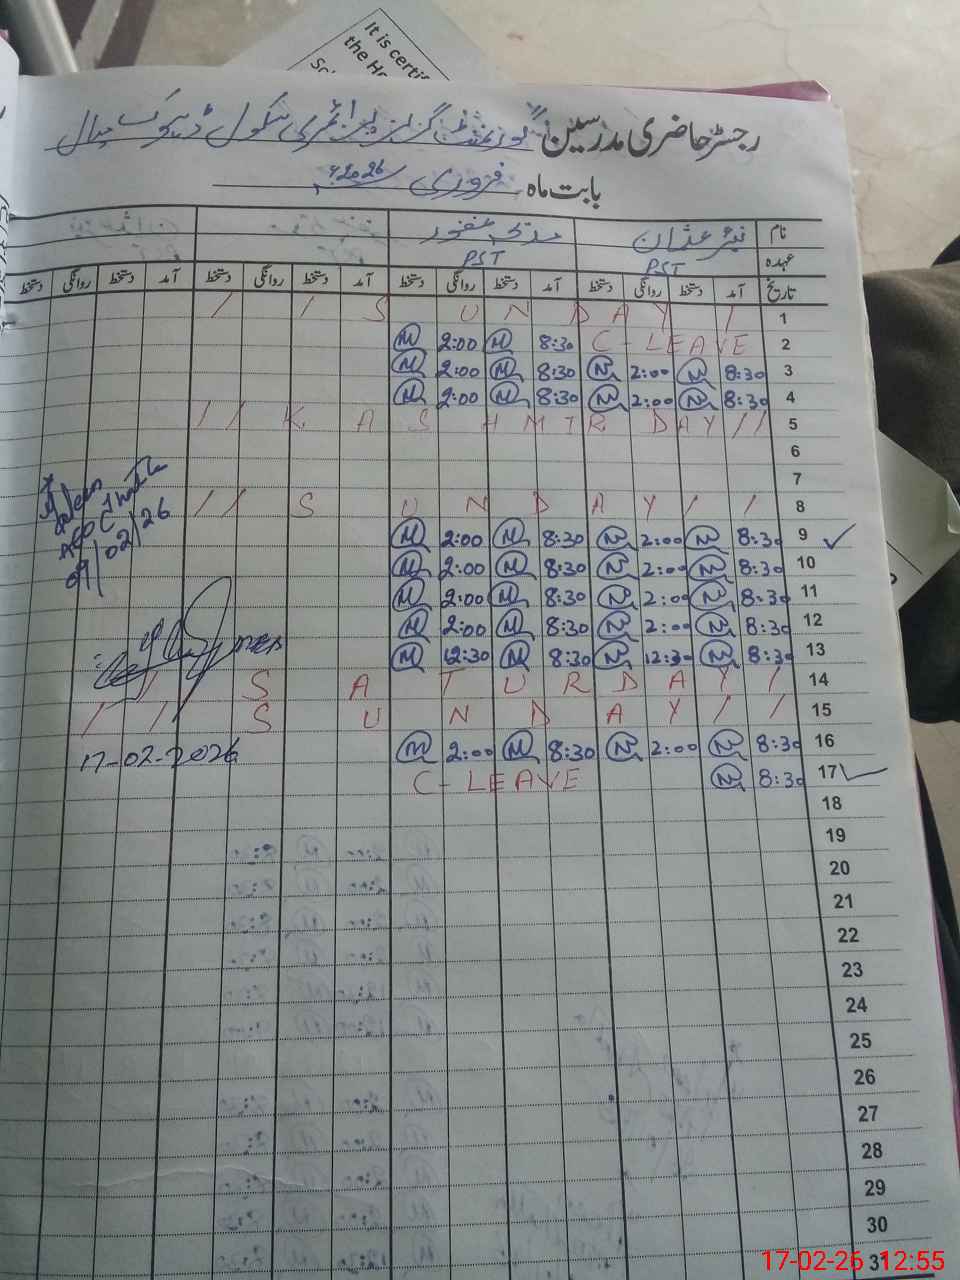 It is certif
the He
Sc
رجسٹر حاضری مدرسین گورنمنٹ گرلز پرائمری سکول ڈہوک سیال
بابت ماہ فروری 2026ء
نام
عہدہ PST PST
تاریخ آمد دستخط روانگی دستخط آمد دستخط روانگی دستخط آمد دستخط روانگی دستخط آمد دستخط روانگی دستخط
/ / S U N D A Y / 1
M 2:00 M 8:30 C-LEAVE 2
M 2:00 M 8:30 N 2:00 N 8:30 3
M 2:00 M 8:30 N 2:00 N 8:30 4
/ / K A S H M I R D A Y / / 5
6
7
/ / S U N D A Y / / 8
M 2:00 M 8:30 N 2:00 N 8:30 9
09/02/26
M 2:00 M 8:30 N 2:00 N 8:30 10
M 2:00 M 8:30 N 2:00 N 8:30 11
M 2:00 M 8:30 N 2:00 N 8:30 12
M 12:30 M 8:30 N 12:30 N 8:30 13
/ / S A T U R D A Y / 14
/ / S U N D A Y / / 15
M 2:00 M 8:30 N 2:00 N 8:30 16
17-02-2026
C-LEAVE N 8:30 17
18
19
20
21
22
23
24
25
26
27
28
29
30
31
17-02-26 12:55